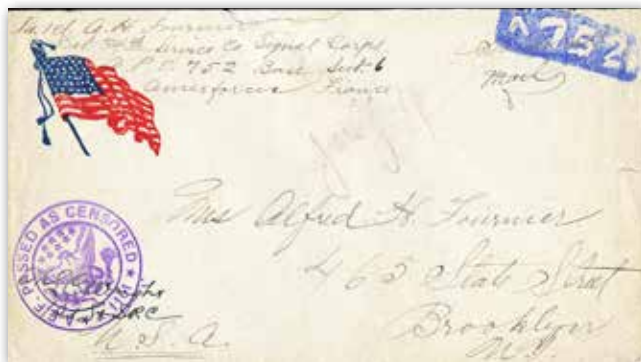 A. H. Fournier
Service Co Signal Corps
A.P.O. 752 Base Sect. 6
Amexforces France
Mail
A 752
Mrs Alfred H. Fournier
465 State Street
Brooklyn
N.Y.
U.S.A.
A.E.F. PASSED AS CENSORED